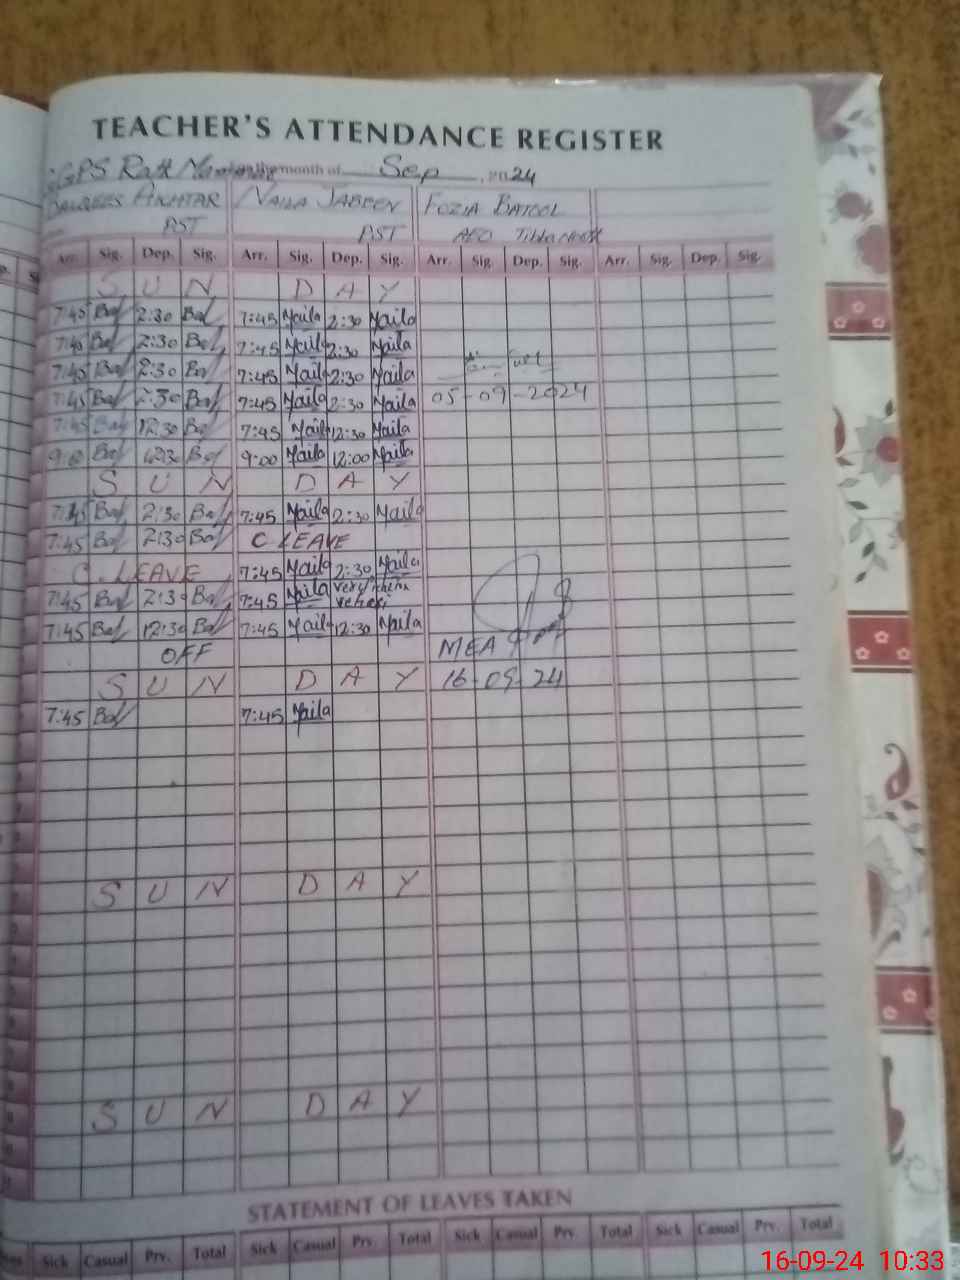 TEACHER'S ATTENDANCE REGISTER
GGPS Ratt for the month of Sep, 2024
BALQEES AKHTAR NAILA JABEEN FOZIA BATOOL
PST PST AEO
Arr. Sig. Dep. Sig. Arr. Sig. Dep. Sig. Arr. Sig. Dep. Sig. Arr. Sig. Dep. Sig.
S U N D A Y
7:45 Bal 2:30 Bal 7:45 Naila 2:30 Naila
7:45 Bal 2:30 Bal 7:45 Naila 2:30 Naila
7:45 Bal 2:30 Bal 7:45 Naila 2:30 Naila
7:45 Bal 2:30 Bal 7:45 Naila 2:30 Naila 05-09-2024
7:45 Bal 12:30 Bal 7:45 Naila 12:30 Naila
9:00 Bal Bal 9:00 Naila 12:00 Naila
S U N D A Y
7:45 Bal 2:30 Bal 7:45 Naila 2:30 Naila
7:45 Bal 2:30 Bal C LEAVE
C. LEAVE 7:45 Naila 2:30 Naila
7:45 Bal 2:30 Bal 7:45 Naila
7:45 Bal 12:30 Bal 7:45 Naila 12:30 Naila
OFF MEA
S U N D A Y 16-09-24
7:45 Bal 7:45 Naila
S U N D A Y
S U N D A Y
STATEMENT OF LEAVES TAKEN
Sick Casual Prv. Total Sick Casual Prv. Total Sick Casual Prv. Total Sick Casual Prv. Total
16-09-24 10:33